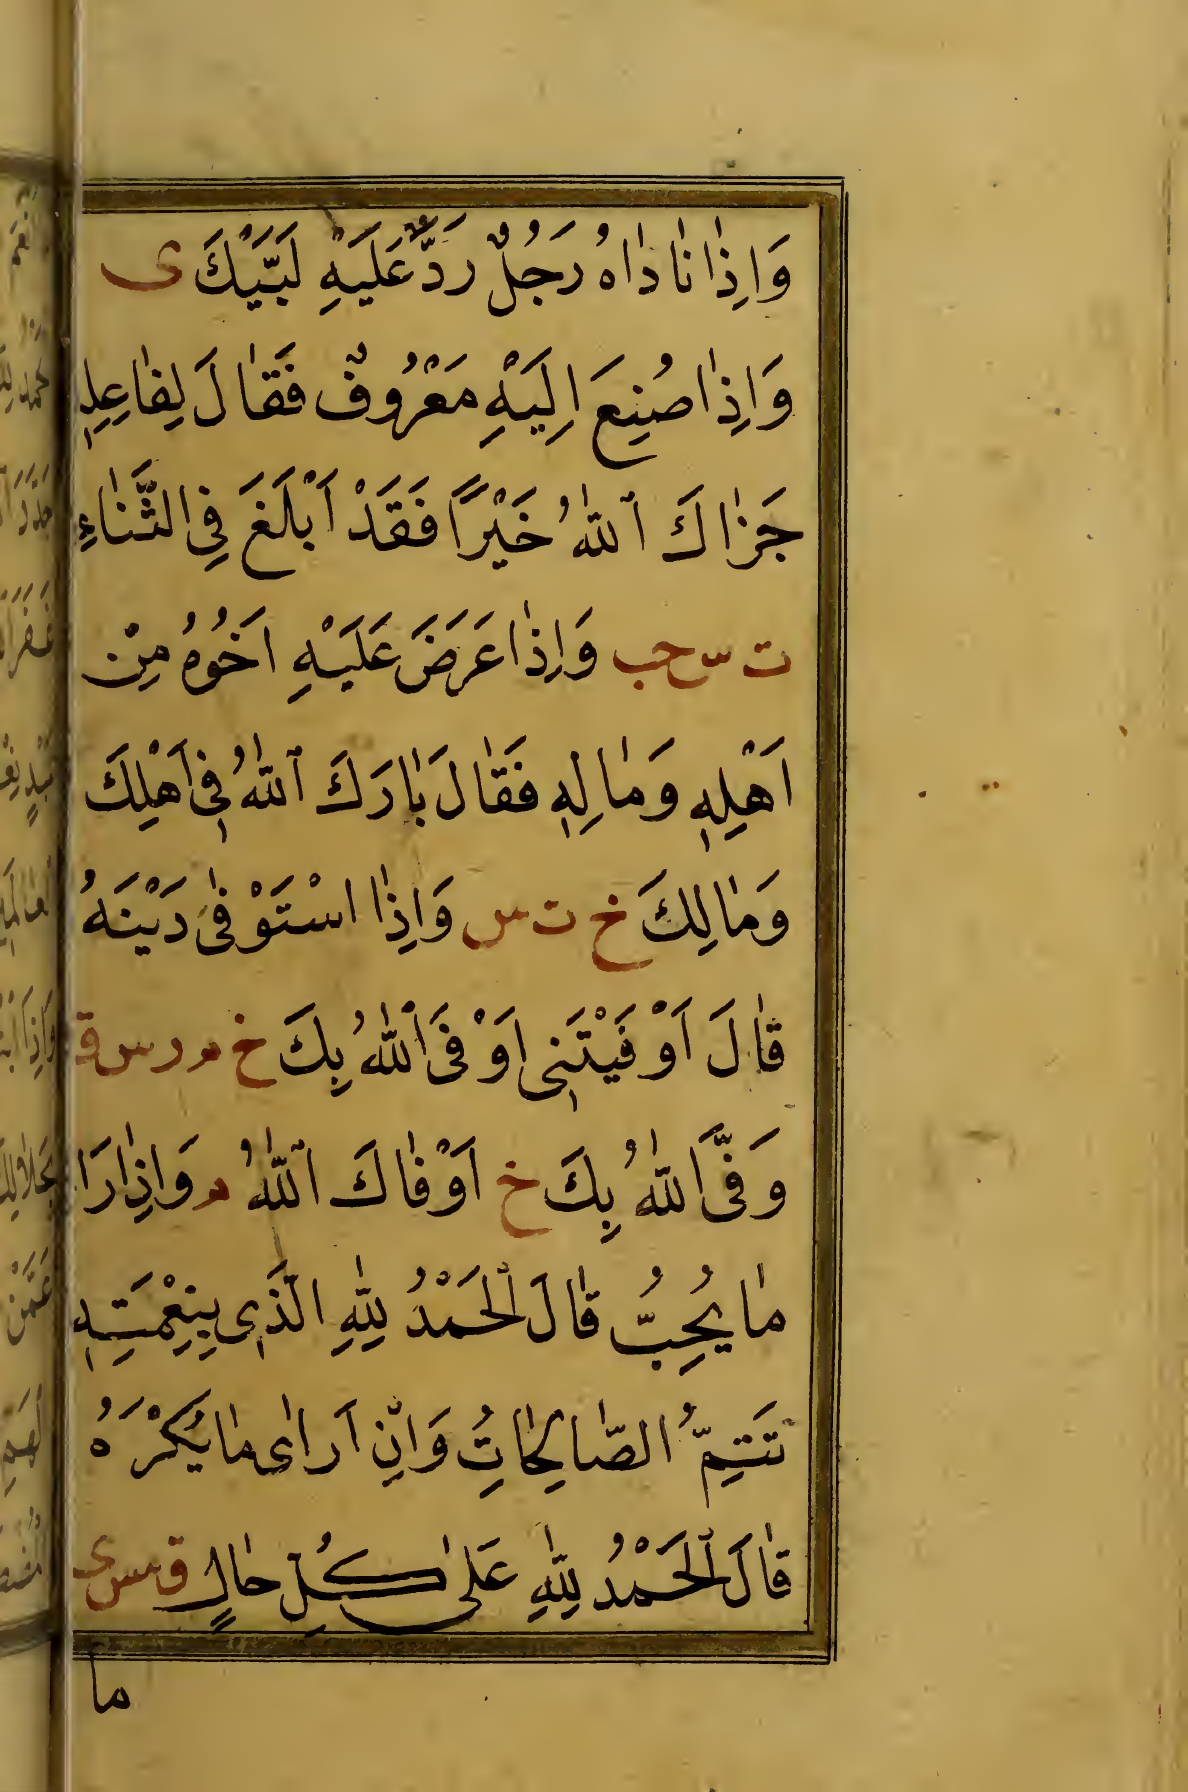 وَاِذٰا نٰادٰاهُ رَجُلٌ رَدَّ عَلَيْهِ لَبَّيْكَ ى
وَاِذٰا صُنِعَ اِلَيْهِ مَعْرُوفٌ فَقٰالَ لِفٰاعِلِهِ
جَزٰاكَ اللّٰهُ خَيْرًا فَقَدْ اَبْلَغَ فِي الثَّنٰاءِ
ت س حب وَاِذٰا عَرَضَ عَلَيْهِ اَخُوهُ مِنْ
اَهْلِهِ وَمٰالِهِ فَقٰالَ بٰارَكَ اللّٰهُ فِى اَهْلِكَ
وَمٰالِكَ خ ت س وَاِذٰا اسْتَوْفٰى دَيْنَهُ
قٰالَ اَوْفَيْتَنِى اَوْفَى اللّٰهُ بِكَ خ م ر س ق
وَفَّى اللّٰهُ بِكَ خ اَوْفٰاكَ اللّٰهُ م وَاِذٰا رَاَ
مٰا يُحِبُّ قٰالَ الْحَمْدُ لِلّٰهِ الَّذِى بِنِعْمَتِهِ
تَتِمُّ الصّٰالِحٰاتُ وَاِنْ رَاٰى مٰا يَكْرَهُ
قٰالَ الْحَمْدُ لِلّٰهِ عَلٰى كُلِّ حٰالٍ ق مس ى
ما